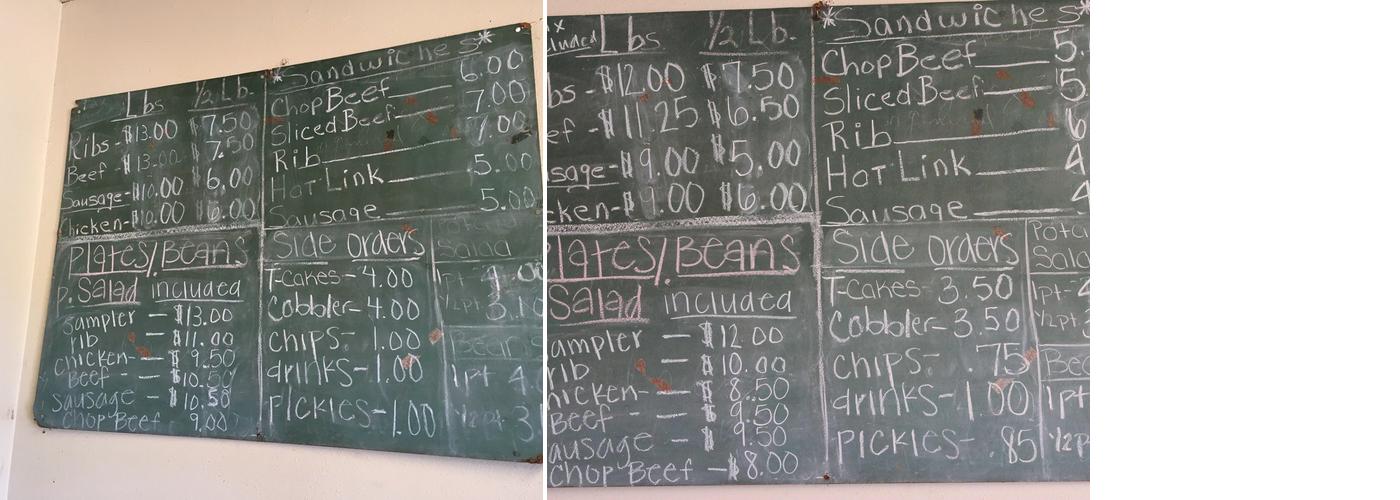 Lbs ½ Lb.
Ribs - $13.00 $7.50
Beef - $13.00 7.50
Sausage - $10.00 6.00
Chicken - $10.00 $6.00
*Sandwiches*
Chop Beef 6.00
Sliced Beef 7.00
Rib 7.00
Hot Link 5.00
Sausage 5.00
Plates/Beans
P. Salad included
sampler — $13.00
rib — $11.00
chicken — $9.50
Beef — $10.50
sausage — $10.50
Chop Beef 9.00
Side orders
T-cakes - 4.00
Cobbler - 4.00
chips - 1.00
drinks - 1.00
Pickles - 1.00
Salad
1pt
½pt
Beans
1pt 4.
½pt. 3
Lbs ½ Lb.
$12.00 $7.50
$11.25 $6.50
$9.00 $5.00
$9.00 $6.00
*Sandwiches*
Chop Beef 5.
Sliced Beef 5.
Rib 6
Hot Link 4
Sausage 4
Plates/Beans
Salad included
ampler — $12.00
rib — $10.00
hicken — $8.50
Beef — $9.50
ausage — 9.50
Chop Beef — $8.00
Side orders
T-cakes - 3.50
Cobbler - 3.50
chips - .75
drinks - 1.00
Pickles - .85
Pota
Sala
1pt-
½pt
Bea
1pt
½p